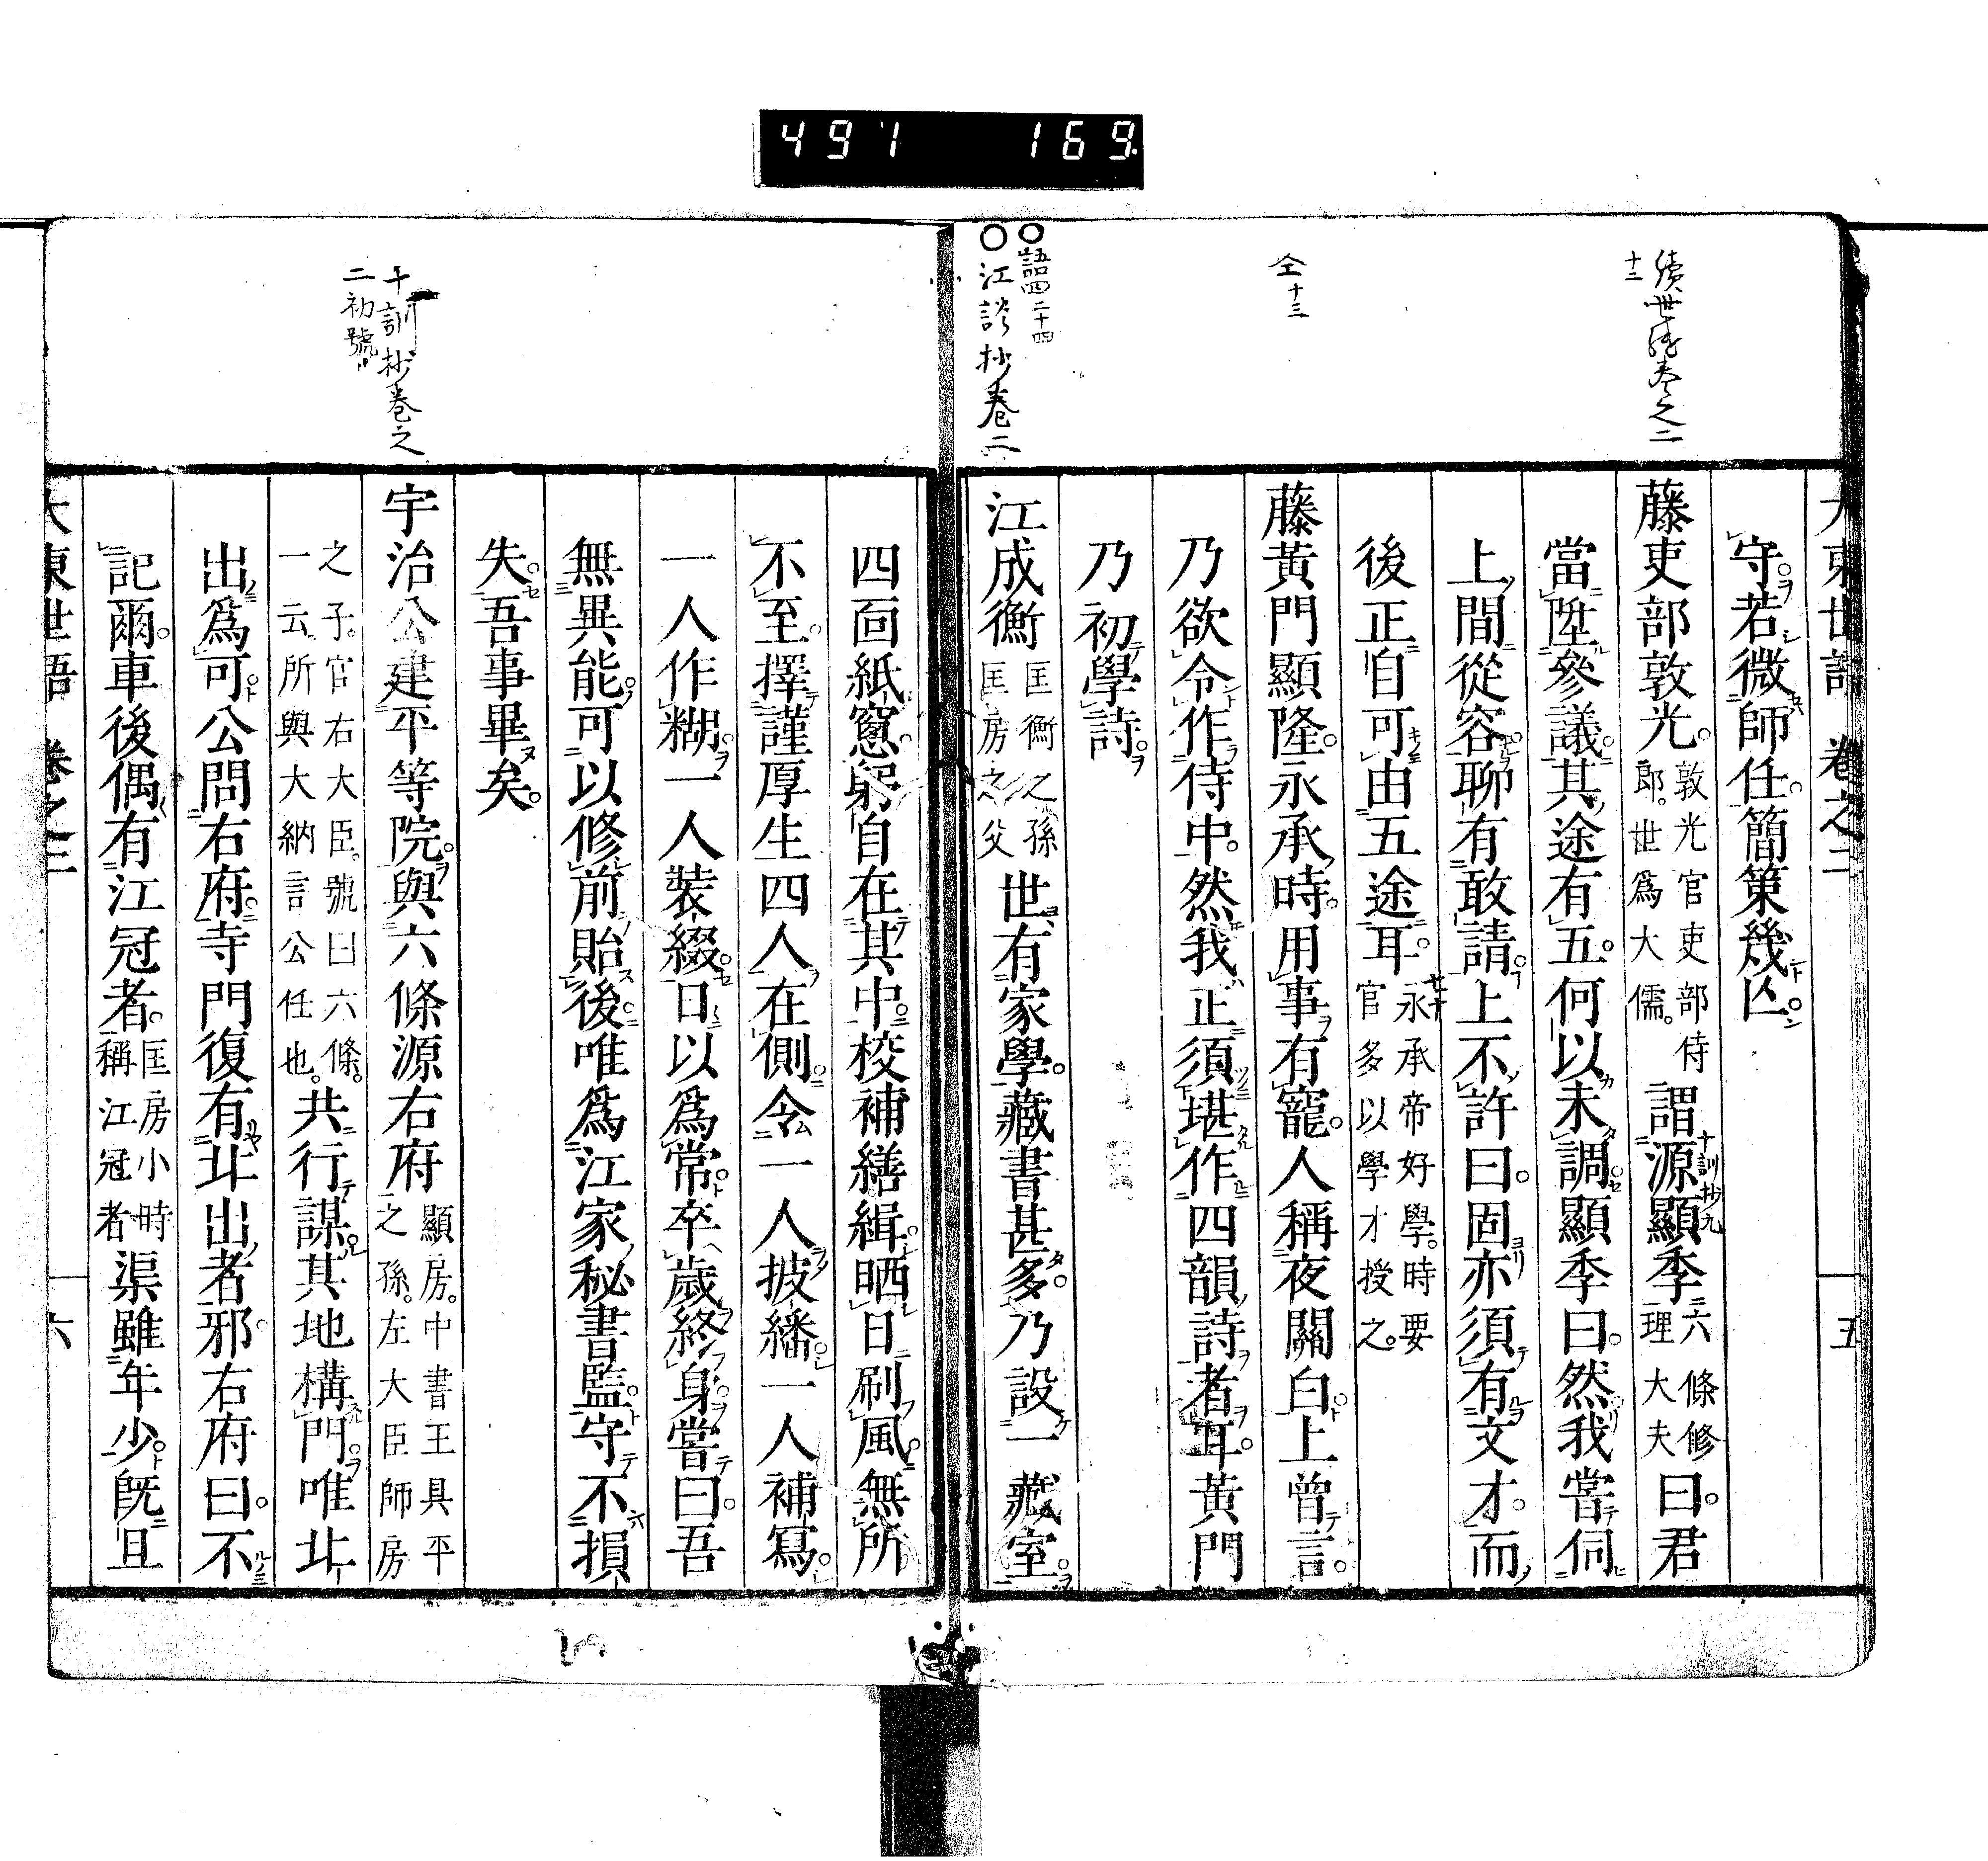 497 169
大東世語 卷之二 五
續世繼卷之二
十二
仝十三
語四二十四
江談抄卷二
守若微師任簡策幾亾
藤吏部敦光敦光官吏部侍郎世爲大儒謂源顯季六條修理大夫曰君
十訓抄九
當陞參議其途有五何以未調顯季曰然我嘗伺
上間從容聊有敢請上不許曰固亦須有文才而
後正自可由五途耳永承帝好學時要官多以學才授之
藤黃門顯隆永承時用事有寵人稱夜關白上曾言
乃欲令作侍中然我正須堪作四韻詩者耳黃門
乃初學詩
江成衡匡衡之孫匡房之父世有家學藏書甚多乃設一藏室
四面紙窻躬自在其中校補繕緝晒日刷風無所
不至擇謹厚生四人在側令一人披繙一人補寫
一人作糊一人裝綴日以爲常卒歲終身嘗曰吾
無異能可以修前貽後唯爲江家秘書監守不損
失吾事畢矣
十訓抄卷之
二初號
宇治公建平等院與六條源右府顯房中書王具平之孫左大臣師房
之子官右大臣號曰六條一云所與大納言公任也共行謀其地構門唯北
出爲可公問右府寺門復有北出者邪右府曰不
記爾車後偶有江冠者匡房小時稱江冠者渠雖年少旣且
大東世語 卷之二 六